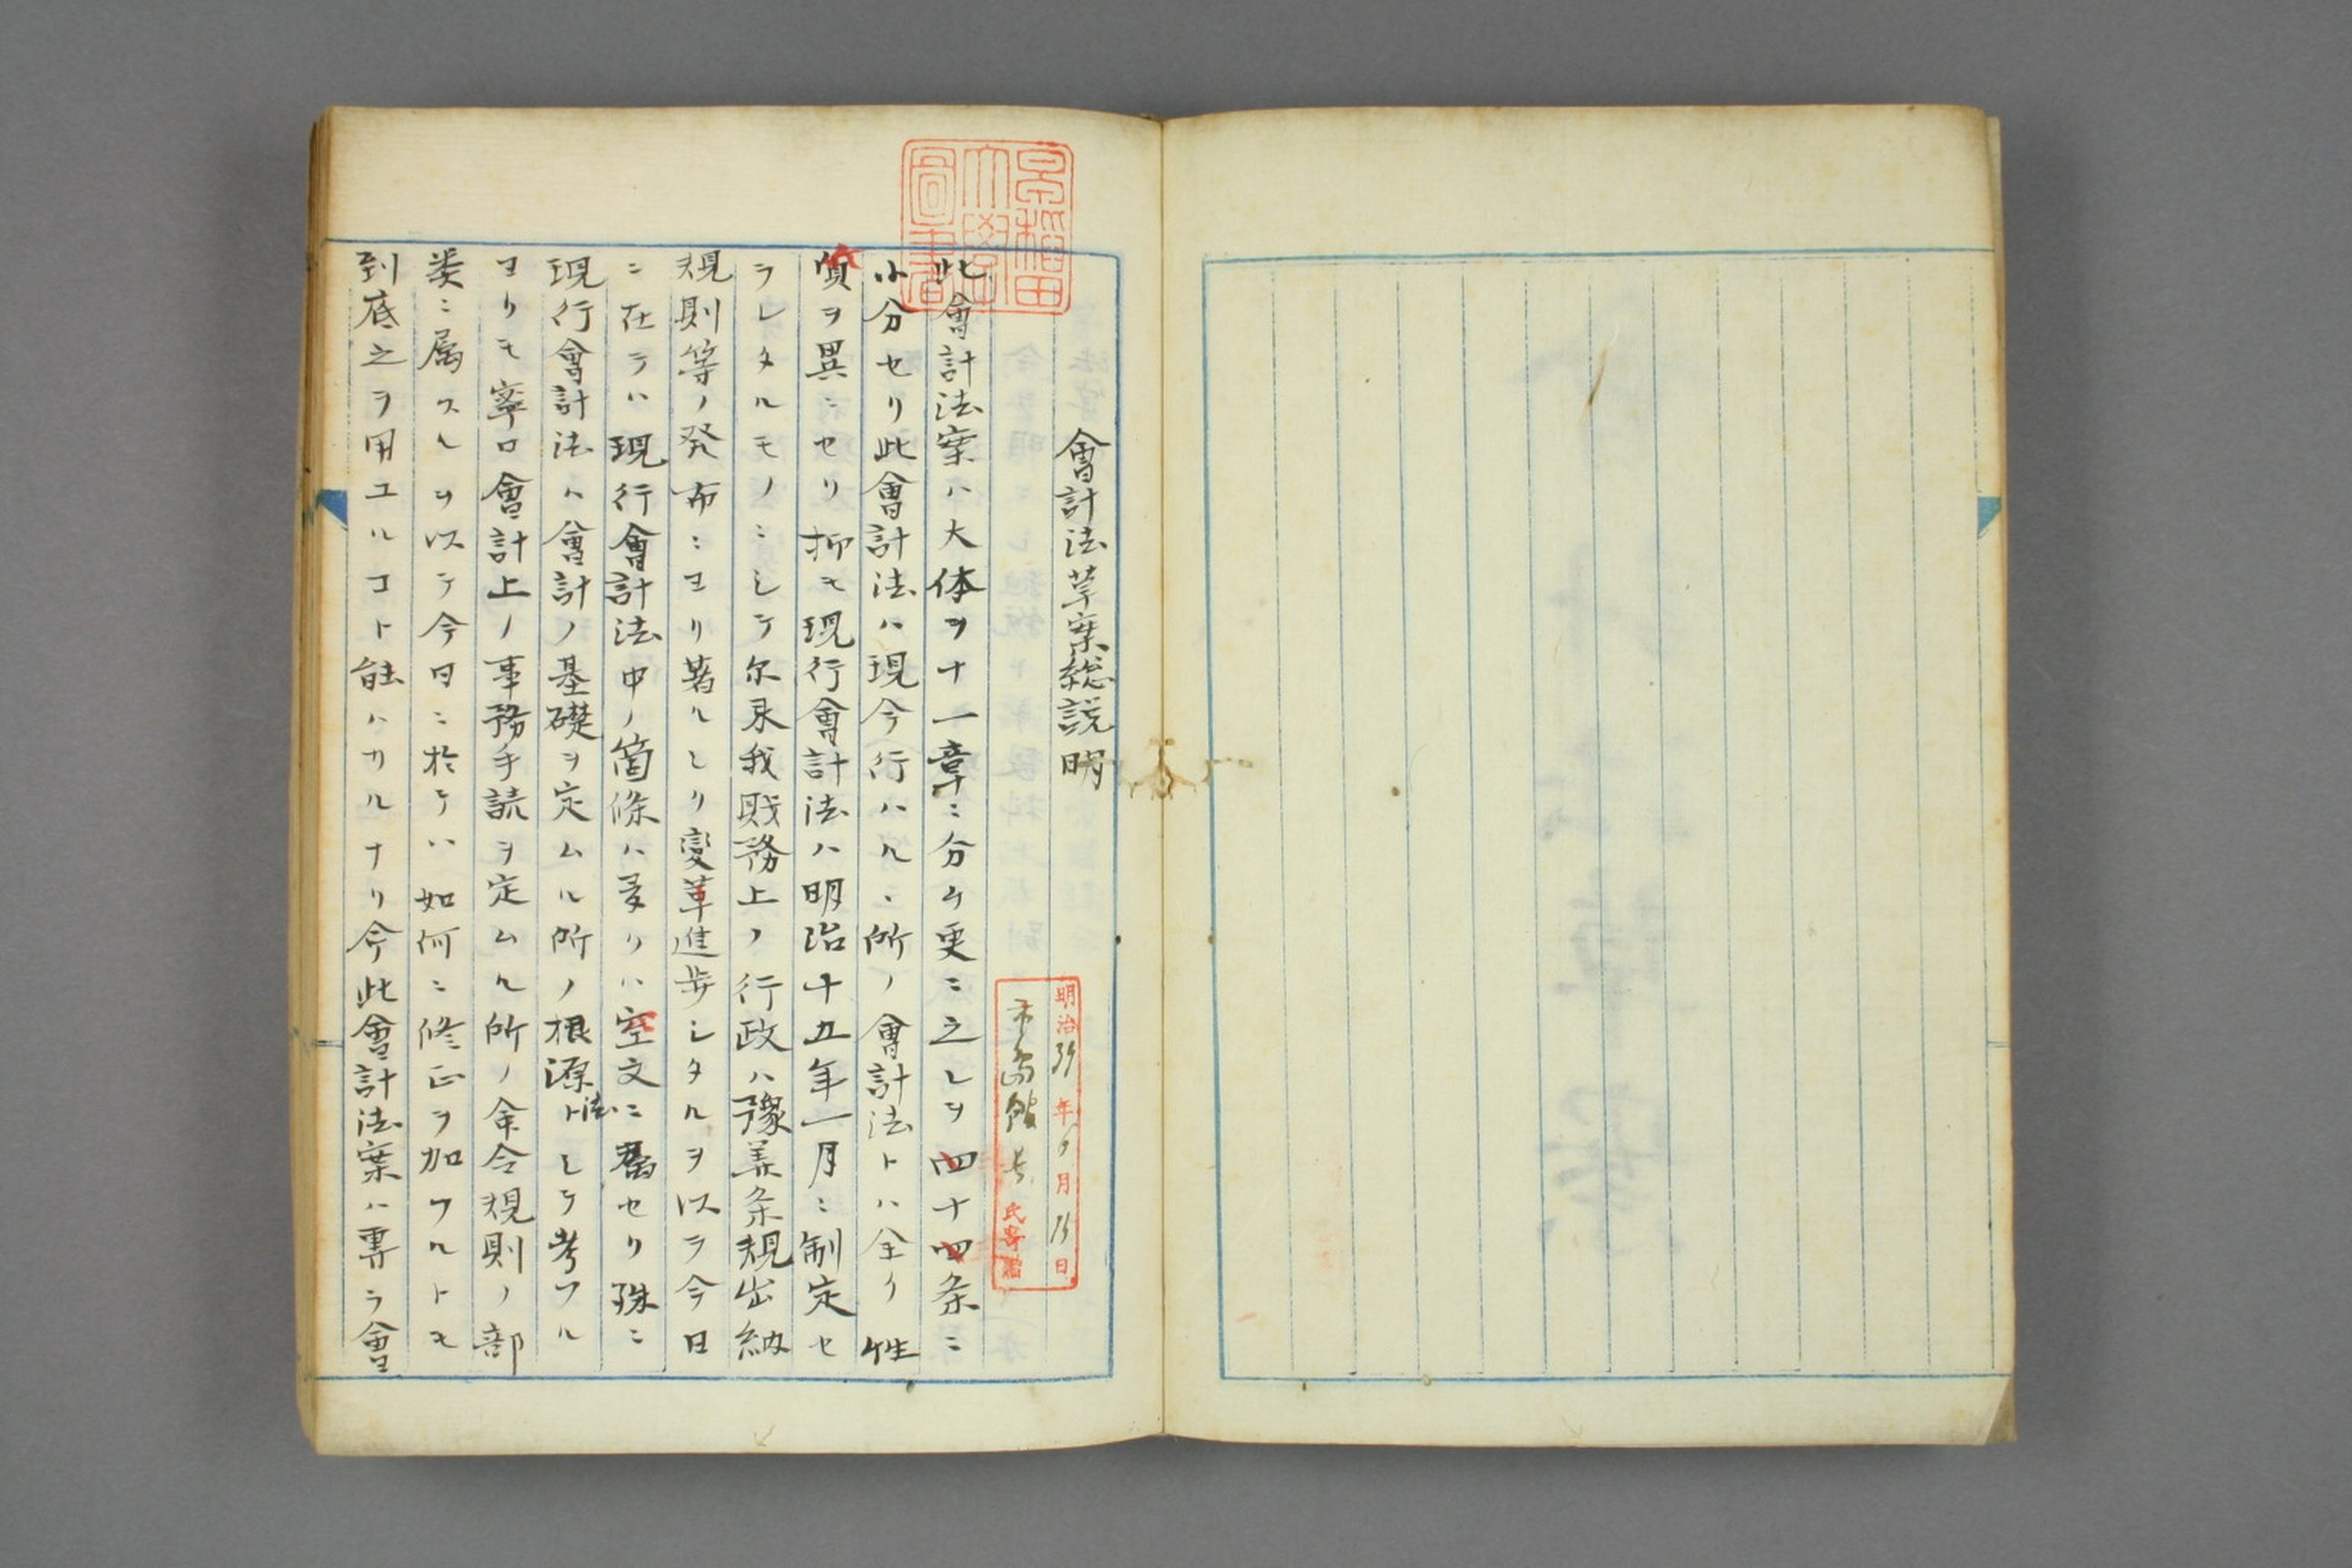 會計法草案総説明
此會計法案ハ大体ヲ十一章ニ分ケ更ニ之レヲ四十四条ニ
小分セリ此會計法ハ現今行ハルヽ所ノ會計法トハ全ク性
質ヲ異ニセリ抑モ現行會計法ハ明治十五年一月ニ制定セ
ラレタルモノニシテ尓来我財務上ノ行政ハ豫算条規出納
規則等ノ発布ニヨリ著ルシク變革進歩シタルヲ以テ今日
ニ在テハ現行會計法中ノ箇條ハ多クハ空文ニ属セリ殊ニ
現行會計法ハ會計ノ基礎ヲ定ムル所ノ根源法トシテ考フル
ヨリモ寧ロ會計上ノ事務手続ヲ定ムル所ノ命令規則ノ部
类ニ属スルヲ以テ今日ニ於テハ如何ニ修正ヲ加フルトモ
到底之ヲ用ユルコト能ハサルナリ今此會計法案ハ専ラ會
早稲田大學圖書
明治39年9月15日
市島謙吉氏寄贈